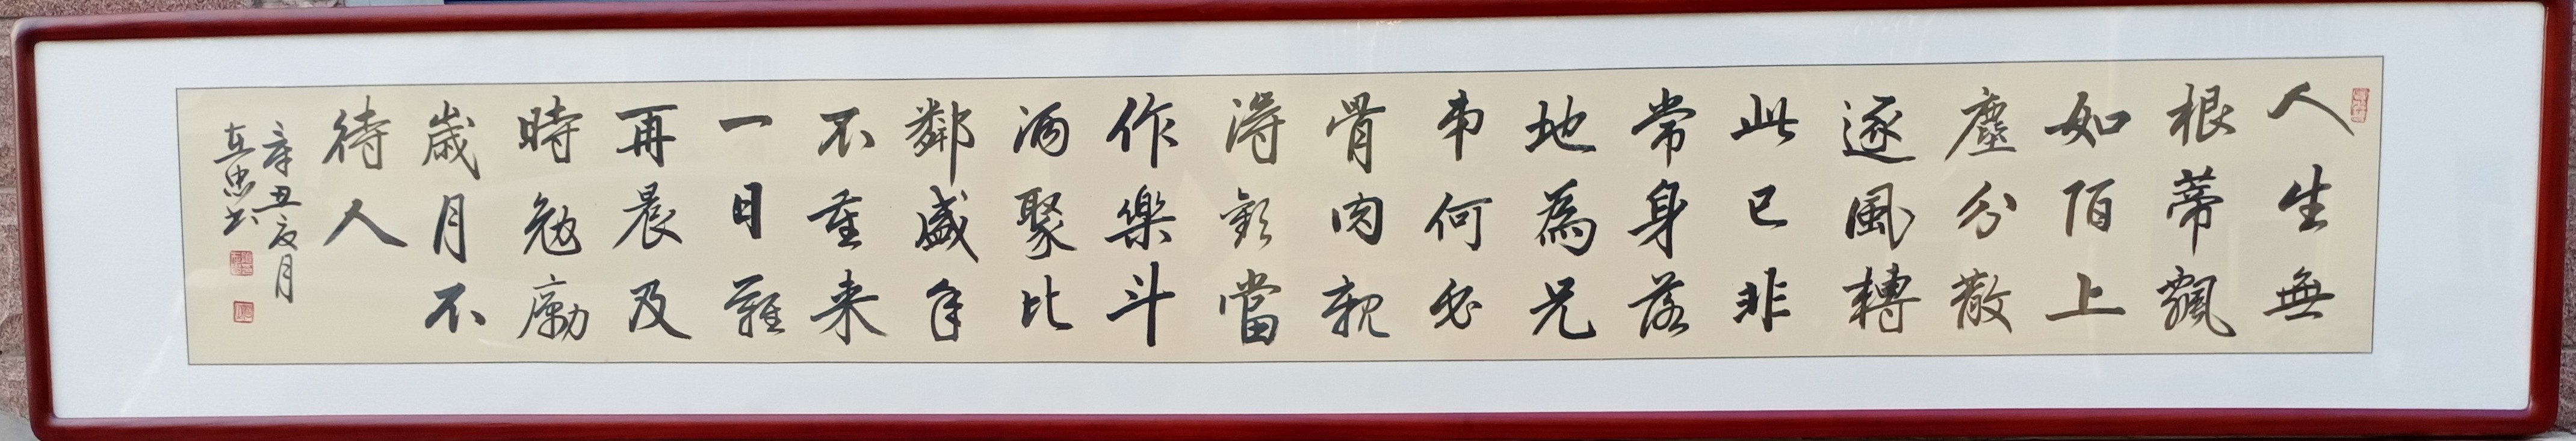 人生無
根蒂飄
如陌上
塵分散
逐風轉
此已非
常身落
地為兄
弟何必
骨肉親
得歡當
作樂斗
酒聚比
鄰盛年
不重来
一日難
再晨及
時勉勵
歲月不
待人
辛丑夏月
忠书